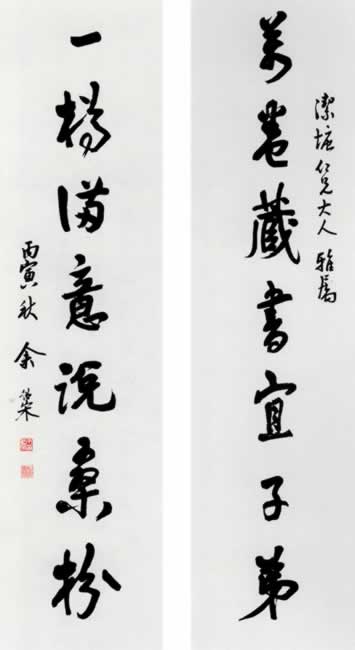 萬卷藏書宜子弟
仁兄大人雅屬
一滿意說桑枌
丙寅秋 余紹宋